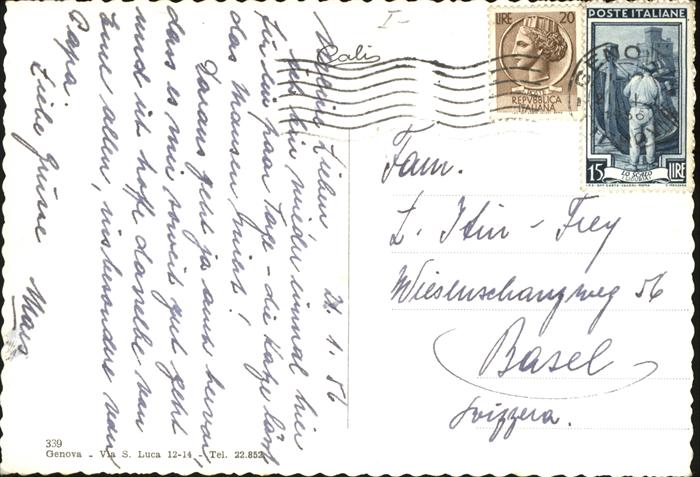 I-
Calis
21.1.56
Meine Lieben
Ich bin wieder einmal hier
für ein paar Tage - die Katze lässt
das Mausen nicht!
Daraus geht ja auch hervor,
dass es mir soweit gut geht
und ich hoffe dasselbe von
Euch allen, insbesondere von
Papa.
Liebe Grüsse
LIRE 20
POSTE
REPVBBLICA
ITALIANA
POSTE ITALIANE
GENOVA
15 LIRE
LO SCAFO
(LIGURIA)
Fam.
Z. Itin-Frey
Wiesenschanzweg 56
Basel
Svizzera.
339
Genova - Via S. Luca 12-14 - Tel. 22.852